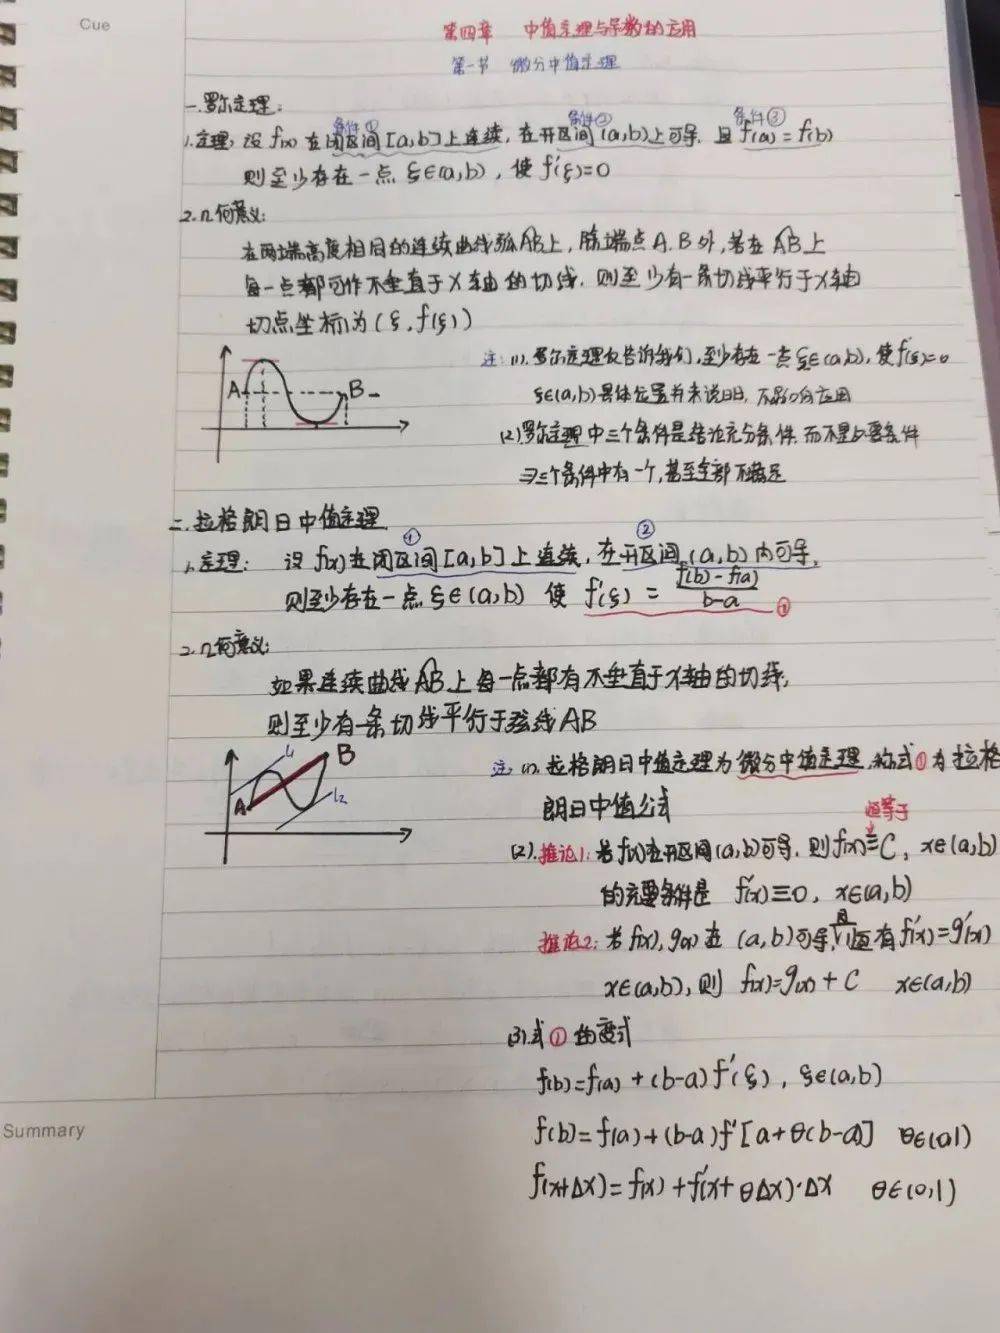 Cue
第四章 中值定理与导数的应用
第一节 微分中值定理
一.罗尔定理:
条件① 条件② 条件③
1.定理: 设 f(x) 在闭区间[a,b]上连续, 在开区间(a,b)上可导. 且 f(a)=f(b)
则至少存在一点 ξ∈(a,b), 使 f'(ξ)=0
2.几何意义:
在两端高度相同的连续曲线弧AB上, 除端点A.B外, 若在AB上
每一点都可作不垂直于X轴的切线. 则至少有一条切线平行于X轴
切点坐标为(ξ, f(ξ))
注: (1). 罗尔定理仅告诉我们, 至少存在一点ξ∈(a,b), 使f'(ξ)=0
ξ∈(a,b)具体位置并未说明, 不影响应用
A B
(2)罗尔定理中三个条件是结论充分条件. 而不是必要条件
⇒三个条件中有一个, 甚至全部不满足
二. 拉格朗日中值定理
① ②
1.定理: 设 f(x)在闭区间[a,b]上连续, 在开区间(a,b)内可导,
则至少存在一点ξ∈(a,b) 使 f'(ξ) = f(b)-f(a)/b-a ①
2.几何意义:
如果连续曲线AB上每一点都有不垂直于X轴的切线,
则至少有一条切线平行于弦线AB
L1 B
A L2
注: (1). 拉格朗日中值定理为微分中值定理. 称式①为拉格
朗日中值公式
恒等于
(2). 推论1: 若f(x)在开区间(a,b)可导. 则f(x)≡C, x∈(a,b)
的充要条件是 f'(x)≡0, x∈(a,b)
推论2: 若f(x), g(x)在(a,b)可导, 且恒有f'(x)=g'(x)
x∈(a,b), 则 f(x)=g(x)+C x∈(a,b)
(3).式①的变式
f(b)=f(a)+(b-a)f'(ξ), ξ∈(a,b)
f(b)=f(a)+(b-a)f'[a+θ(b-a)] θ∈(0,1)
f(x+Δx)=f(x)+f'(x+θΔx)·Δx θ∈(0,1)
Summary